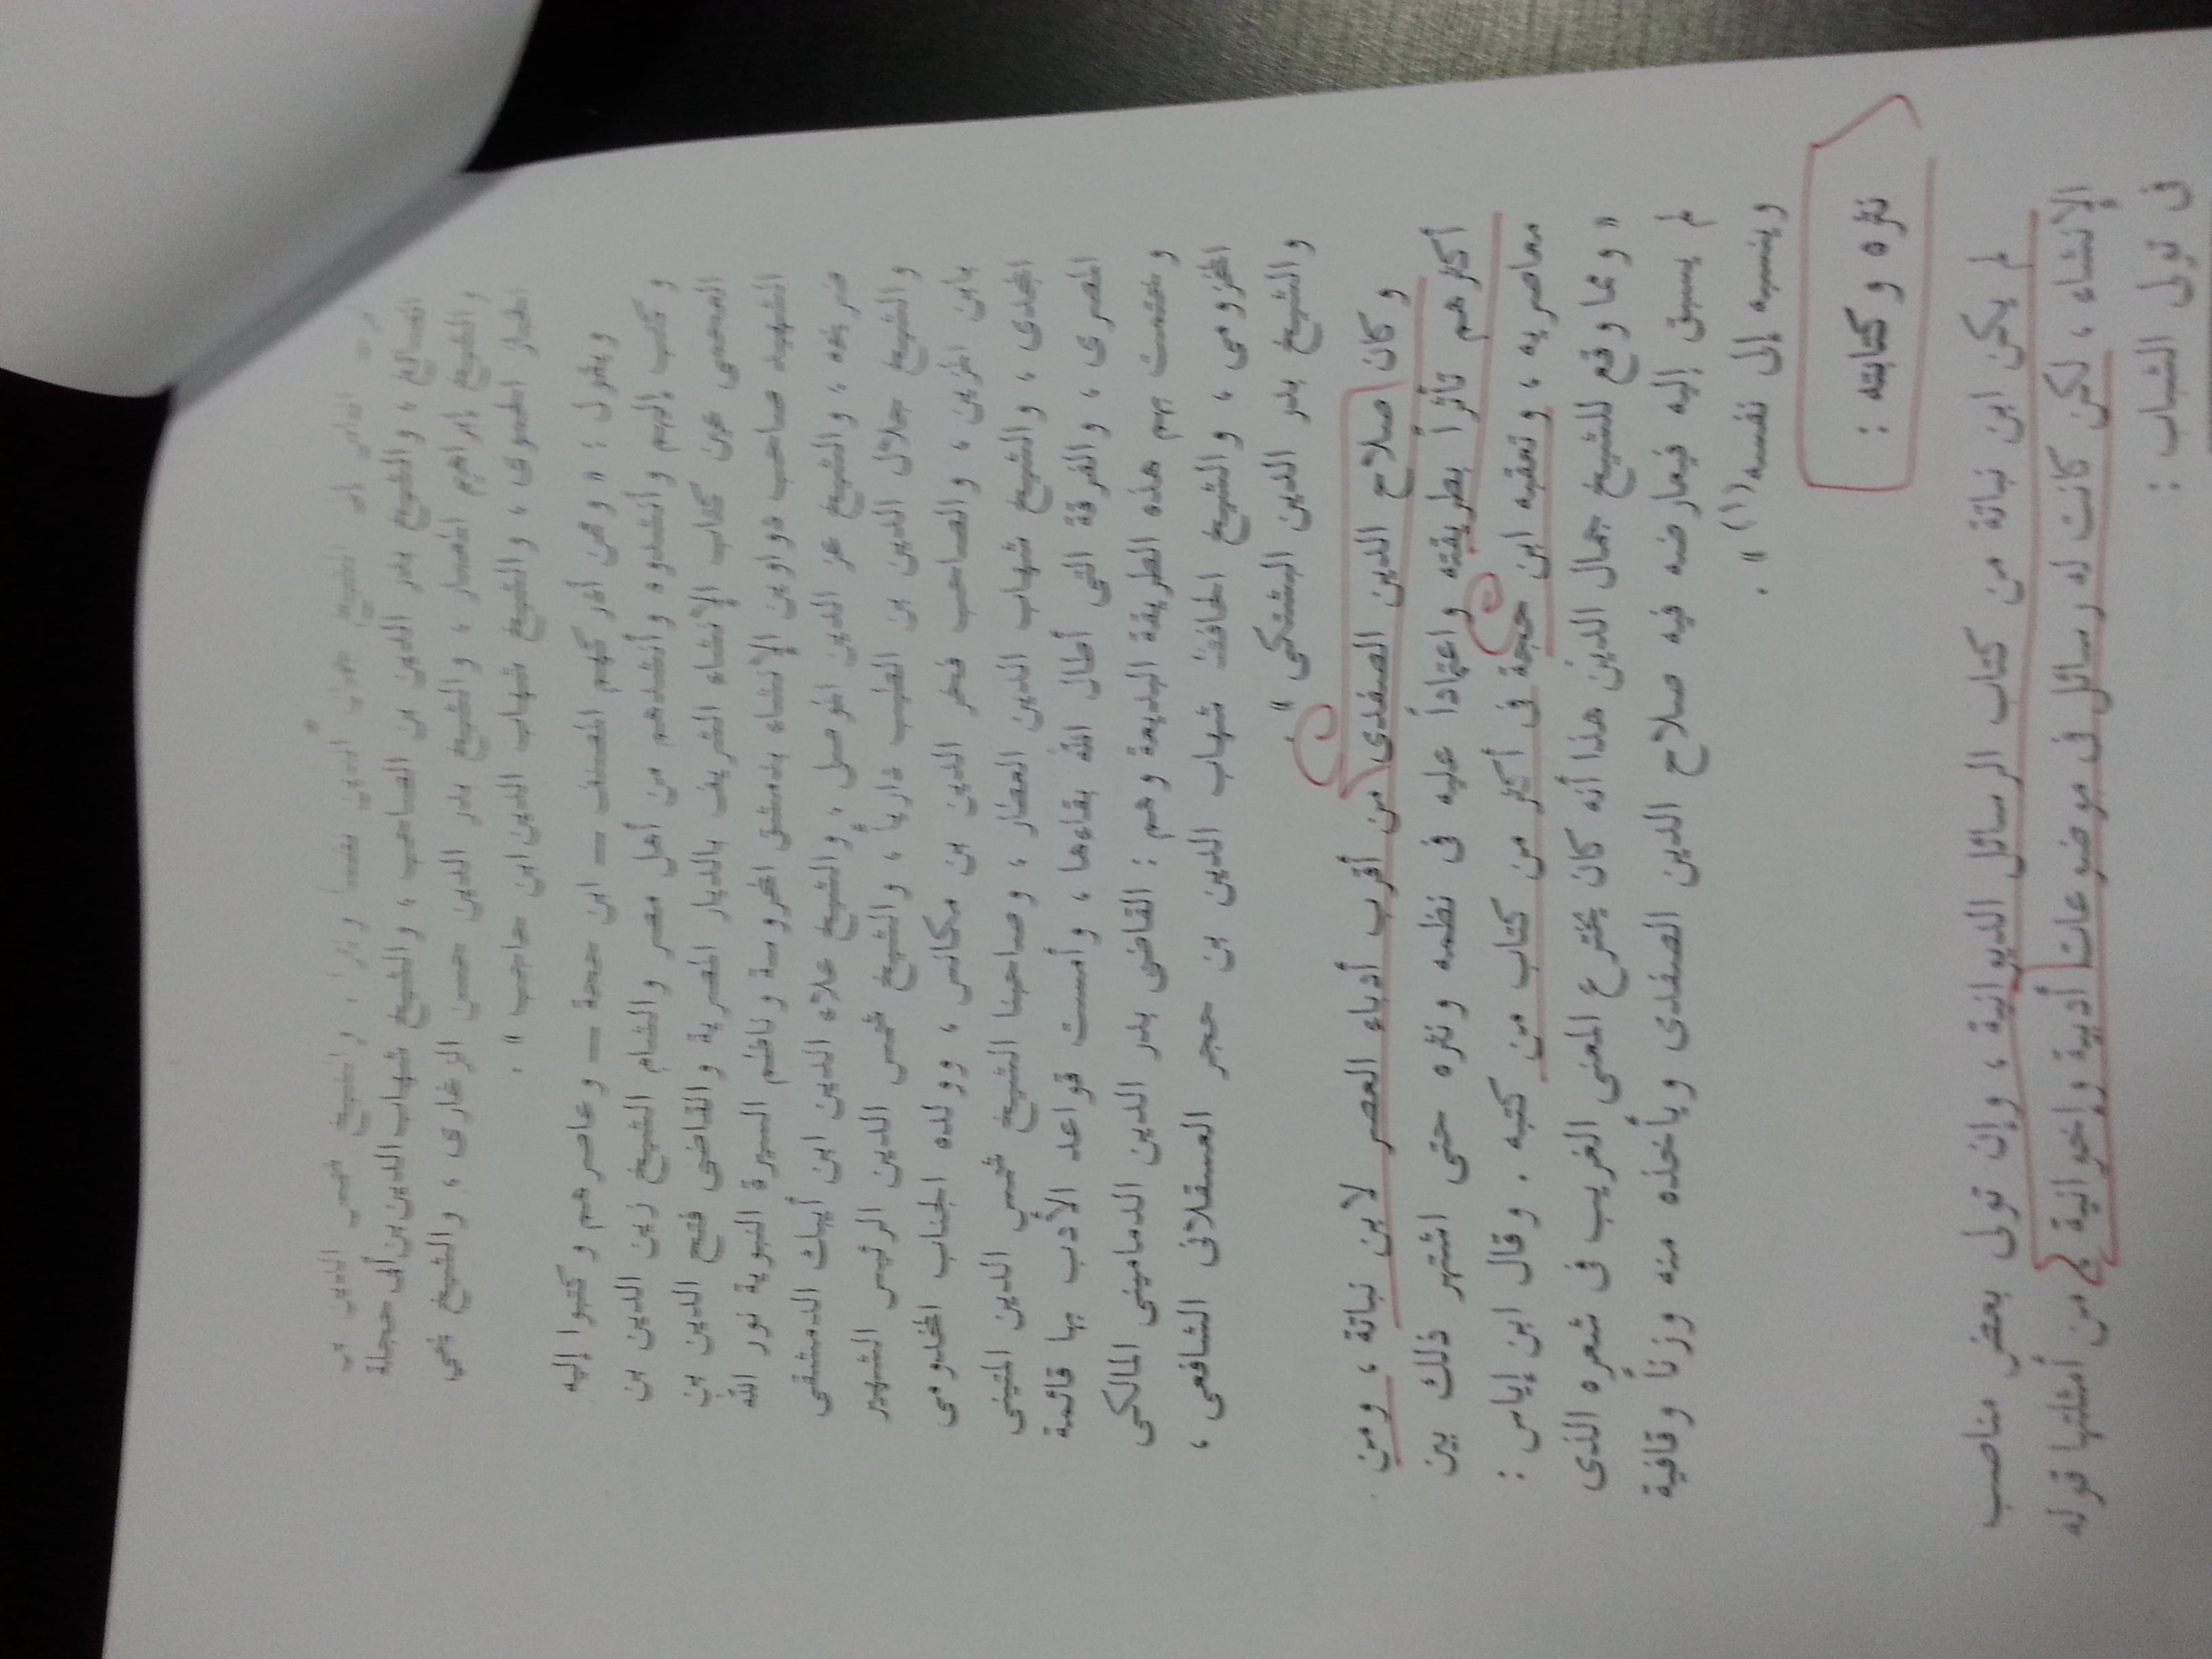 الدين بن
الصائغ ، والشيخ بدر الدين بن الصاحب ، والشيخ شهاب الدين بن أبى حجلة
والشيخ إبراهيم المعمار ، والشيخ بدر الدين حسن الزغارى ، والشيخ يحيي
الخباز الحموى ، والشيخ شهاب الدين ابن حاجب » .
ويقول : « ومن أدركهم المصنف — ابن حجة — وعاصرهم وكتبوا إليه
وكتب إليهم وأنشدوه وأنشدهم من أهل مصر والشام الشيخ زين الدين بن
العجمى عين كتاب الإنشاء الشريف بالديار المصرية والقاضى فتح الدين بن
الشهيد صاحب دواوين الإنشاء بدمشق المحروسة وناظم السيرة النبوية نور الله
ضريحه ، والشيخ عز الدين الموصلى ، والشيخ علاء الدين ابن أيبك الدمشقى
والشيخ جلال الدين بن خطيب داريا ، والشيخ شمس الدين الرئيس الشهير
بابن المزين ، والصاحب فخر الدين بن مكانس ، وولده الجناب المخدومى
المجدى ، والشيخ شهاب الدين العطار ، وصاحبنا الشيخ شمس الدين المتينى
المصرى ، والفرقة التى أطال الله بقاءها ، وأمست قواعد الأدب بها قائمة
وختمت بهم هذه الطريقة البديعة وهم : القاضى بدر الدين الدمامينى المالكى
المخزومى ، والشيخ الحافظ شهاب الدين بن حجر العسقلانى الشافعى ،
والشيخ بدر الدين البشتكى » .
وكان صلاح الدين الصفدى من أقرب أدباء العصر لابن نباتة ، ومن
أكثرهم تأثراً بطريقته واعتماداً عليه فى نظمه ونثره حتى اشتهر ذلك بين
معاصريه ، وتعقبه ابن حجة فى أكثر من كتاب من كتبه . وقال ابن إياس :
« ومما وقع للشيخ جمال الدين هذا أنه كان يخترع المعنى الغريب فى شعره الذى
لم يسبق إليه فيعارضه فيه صلاح الدين الصفدى ويأخذه منه وزناً وقافية
وينسبه إلى نفسه(١) » .
نثره وكتابته :
لم يكن ابن نباتة من كتاب الرسائل الديوانية ، وإن تولى بعض مناصب
الإنشاء ، لكن كانت له رسائل فى موضوعات أدبية وإخوانية ؛ من أمثلتها قوله
فى تولى الشباب :